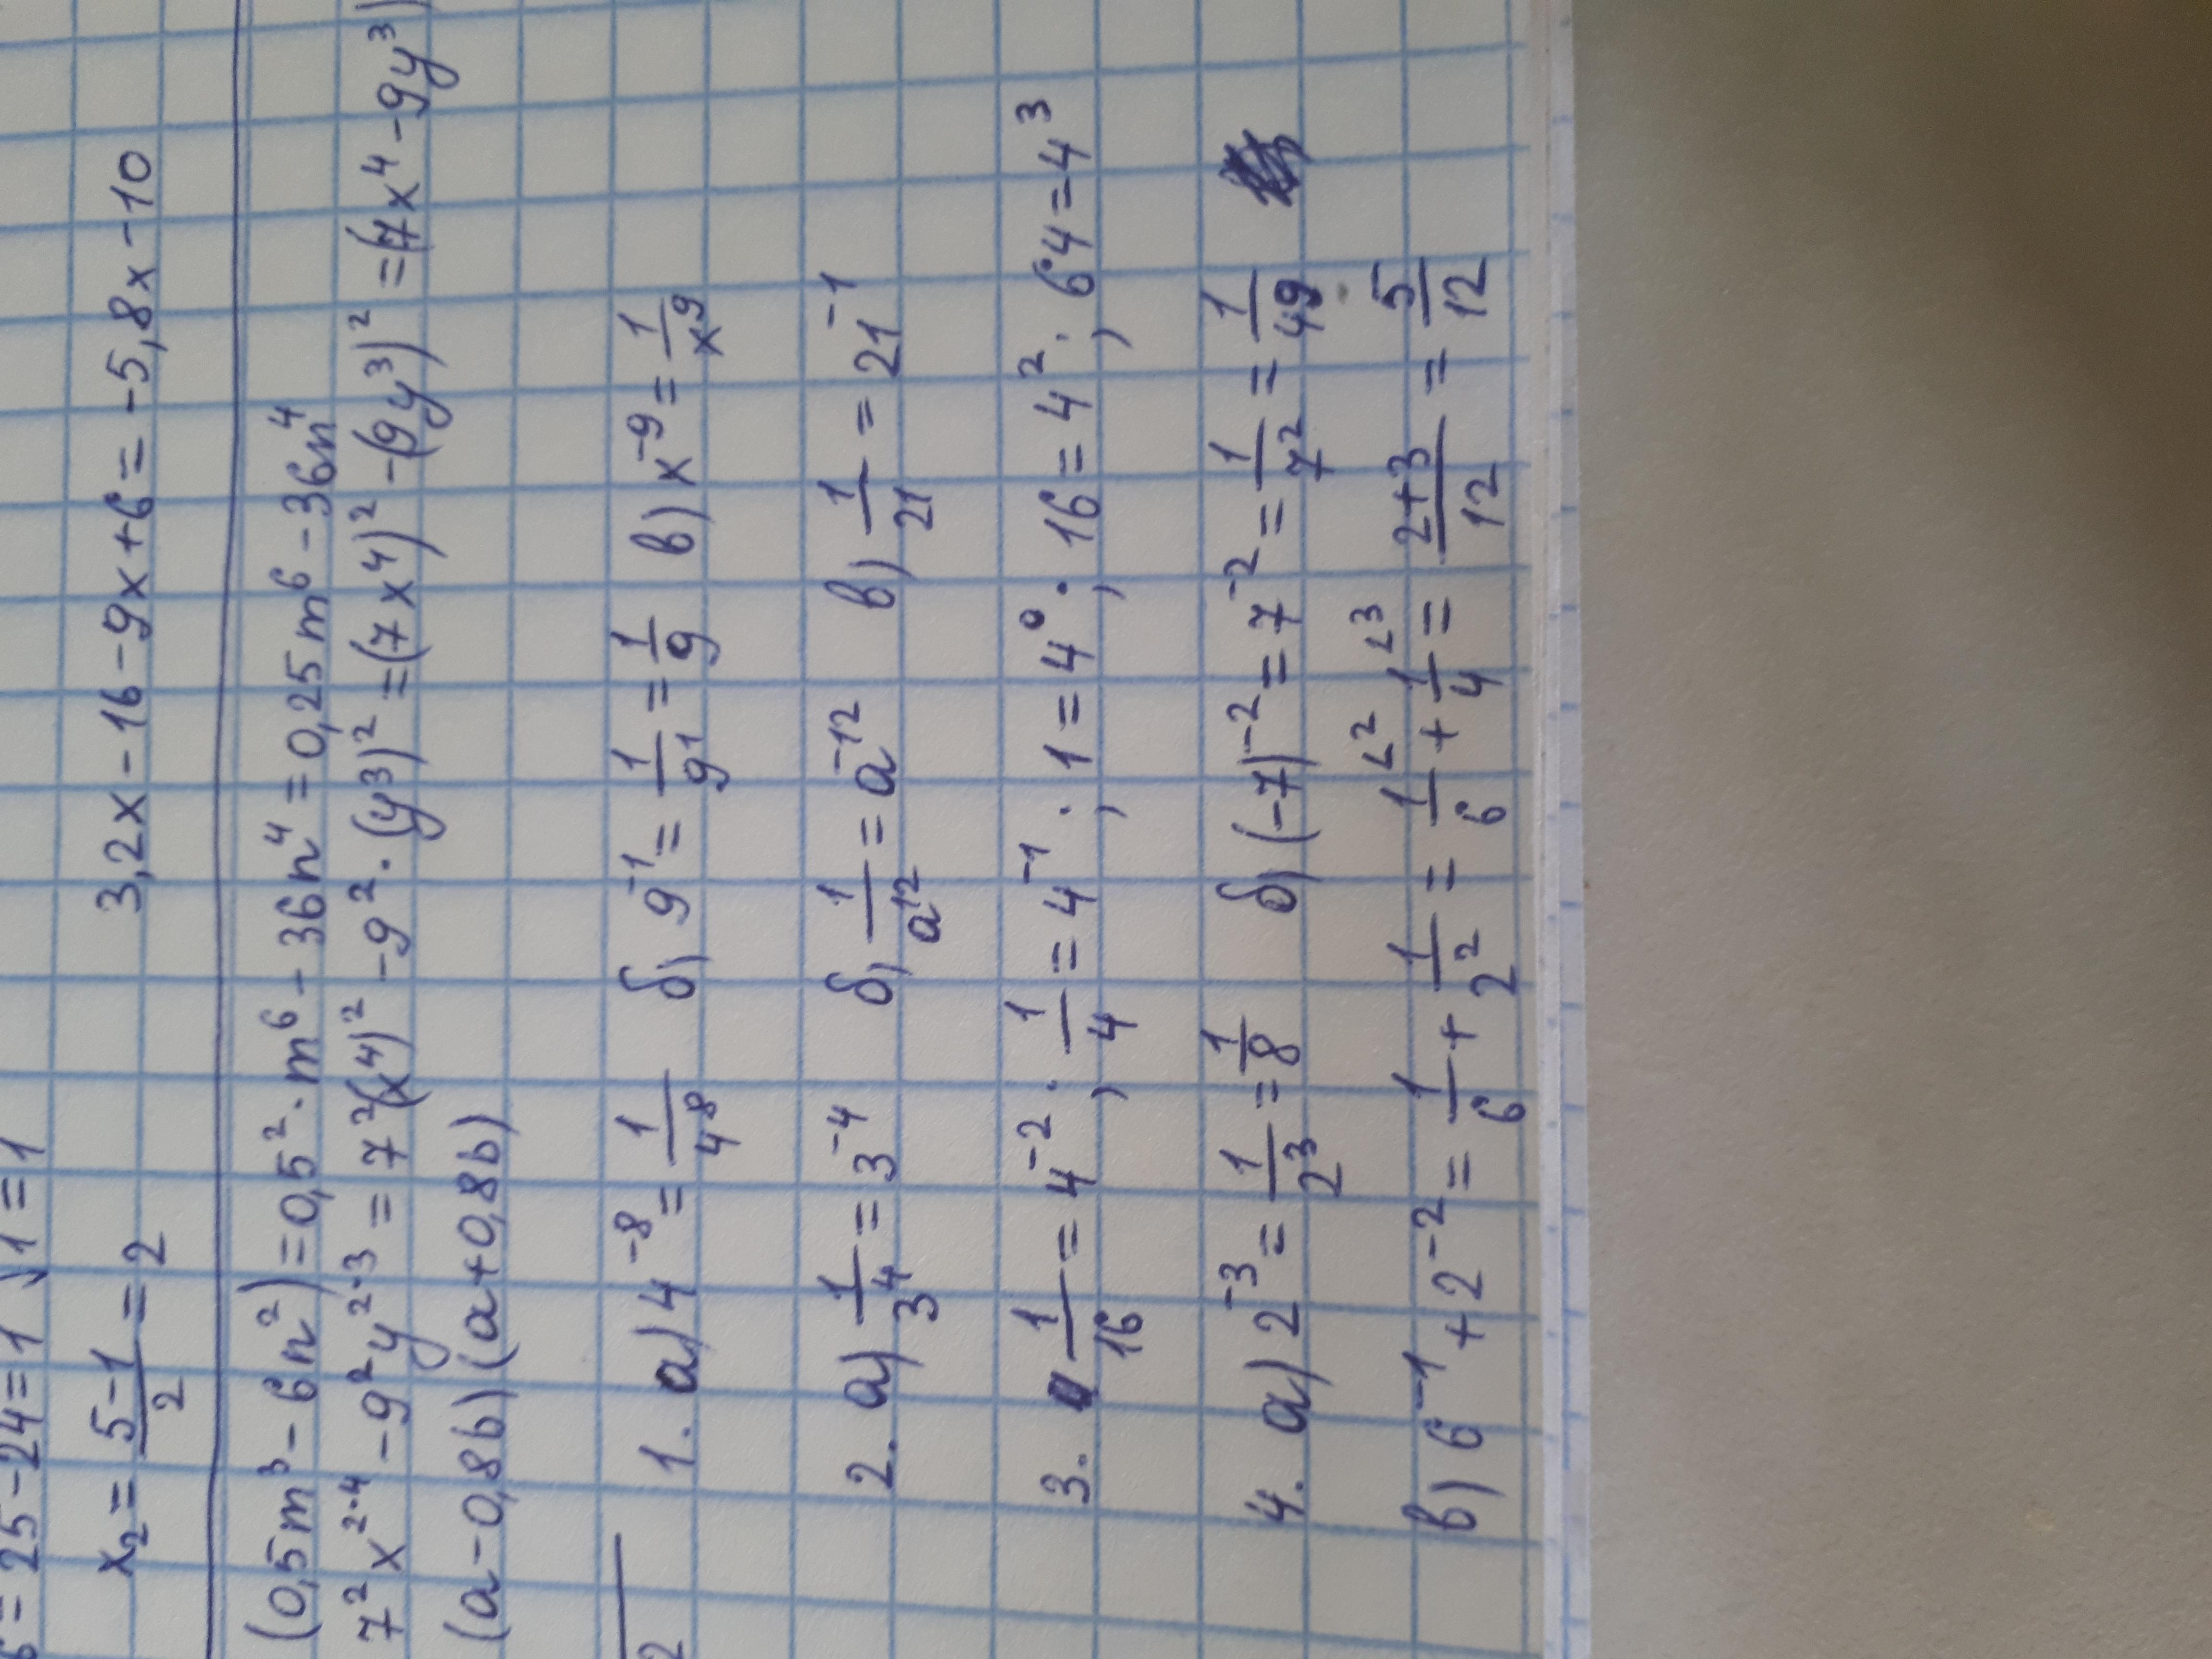 = 25-24=1 √1=1
x₂ = (5-1)/2 = 2    3,2x-16-9x+6=-5,8x-10
(0,5m³-6n²)=0,5²·m⁶-36n⁴=0,25m⁶-36n⁴
7²x²·⁴-9²y²·³=7²(x⁴)²-9²·(y³)²=(7x⁴)²-(9y³)²=(7x⁴-9y³)
(a-0,8b)(a+0,8b)
2
1. а) 4⁻⁸=1/4⁸ б) 9⁻¹=1/9¹=1/9 в) x⁻⁹=1/x⁹
2. а) 1/3⁴=3⁻⁴ б) 1/a¹²=a⁻¹² в) 1/21=21⁻¹
3. 1/16=4⁻²; 1/4=4⁻¹; 1=4⁰; 16=4²; 64=4³
4. а) 2⁻³=1/2³=1/8 б) (-7)⁻²=7⁻²=1/7²=1/49
в) 6⁻¹+2⁻²=1/6+1/2²=1/6 ∠2+1/4 ∠3=(2+3)/12=5/12